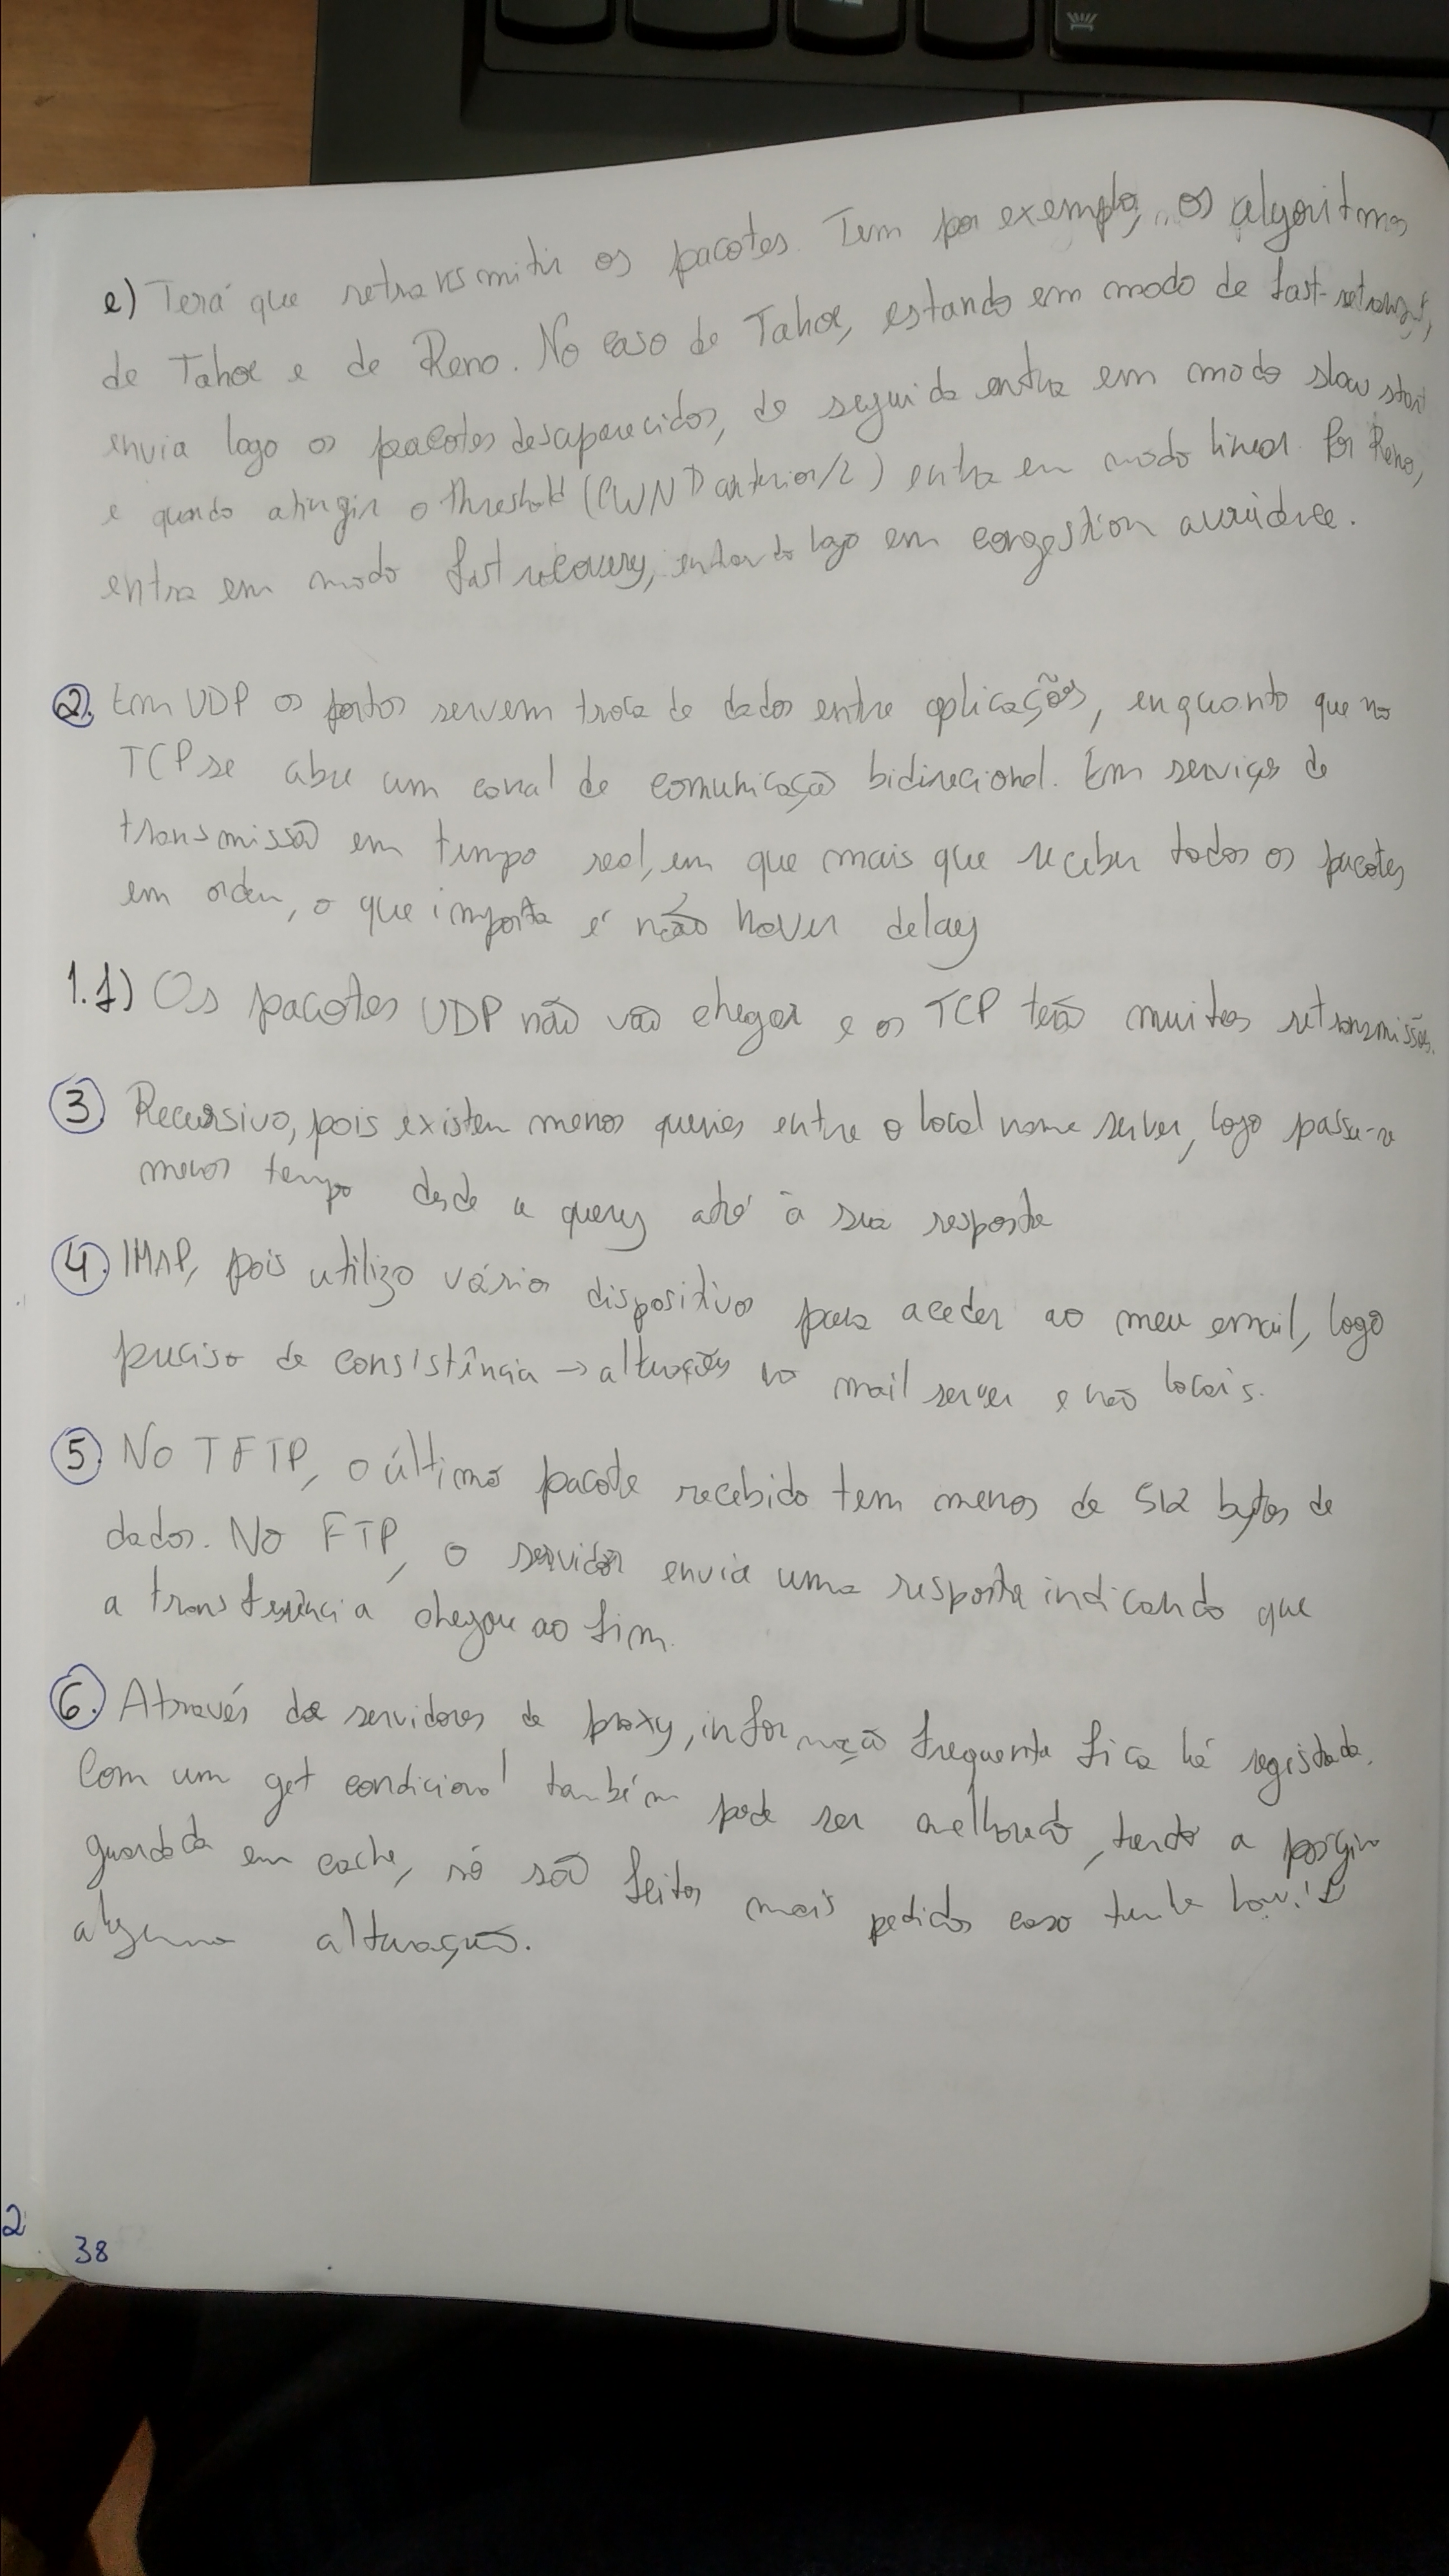 e) Terá que retransmitir os pacotes. Tem por exemplo, os algoritmos
de Tahoe e de Reno. No caso de Tahoe, estando em modo de fast-retransmit,
envia logo os pacotes desaparecidos, de seguida entra em modo slow start
e quando atingir o threshold (CWND anterior/2) entra em modo linear. Por Reno,
entra em modo fast recovery, entrando logo em congestion
2. Em UDP os portos servem troca de dados entre aplicações, enquanto que no
TCP se abre um canal de comunicação bidirecional. Em serviços de
transmissão em tempo real, em que mais que receber todos os pacotes
em ordem, o que importa é não haver delay
1.f) Os pacotes UDP não vão chegar e os TCP terão muitas retransmissões.
3. Recursivo, pois existem menos queries entre o local name server, logo passa-se
menos tempo desde a query até à sua resposta
4. IMAP, pois utilizo vários dispositivos para aceder ao meu email, logo
preciso de consistência → alterações no mail server e não locais.
5. No TFTP, o último pacote recebido tem menos de 512 bytes de
dados. No FTP, o servidor envia uma resposta indicando que
a transferência chegou ao fim.
6. Através de servidores de proxy, informação frequente fica lá registada.
Com um get condicional também pode ser melhorado, tendo a página
guardada em cache, só são feitos mais pedidos caso tenha havido
alguma alteração.
2
38